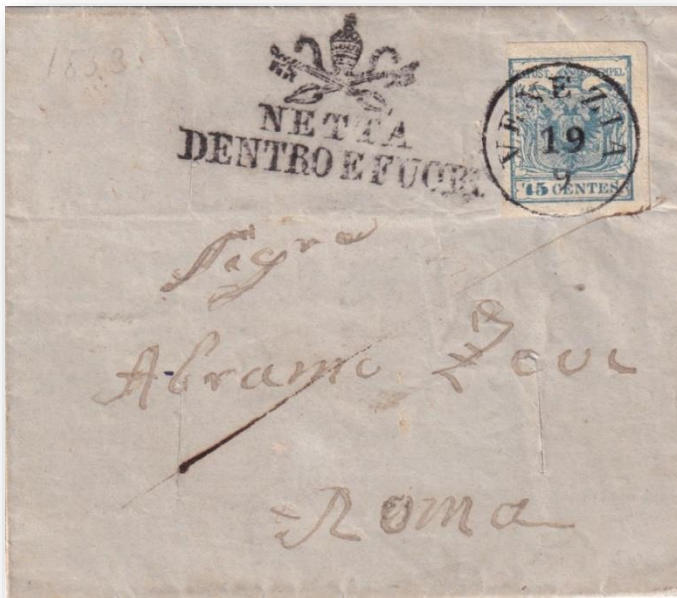 1853.
NETTA
DENTRO E FUORI
VENEZIA
19
9
45 CENTES.
Sigre
Abramo
Roma